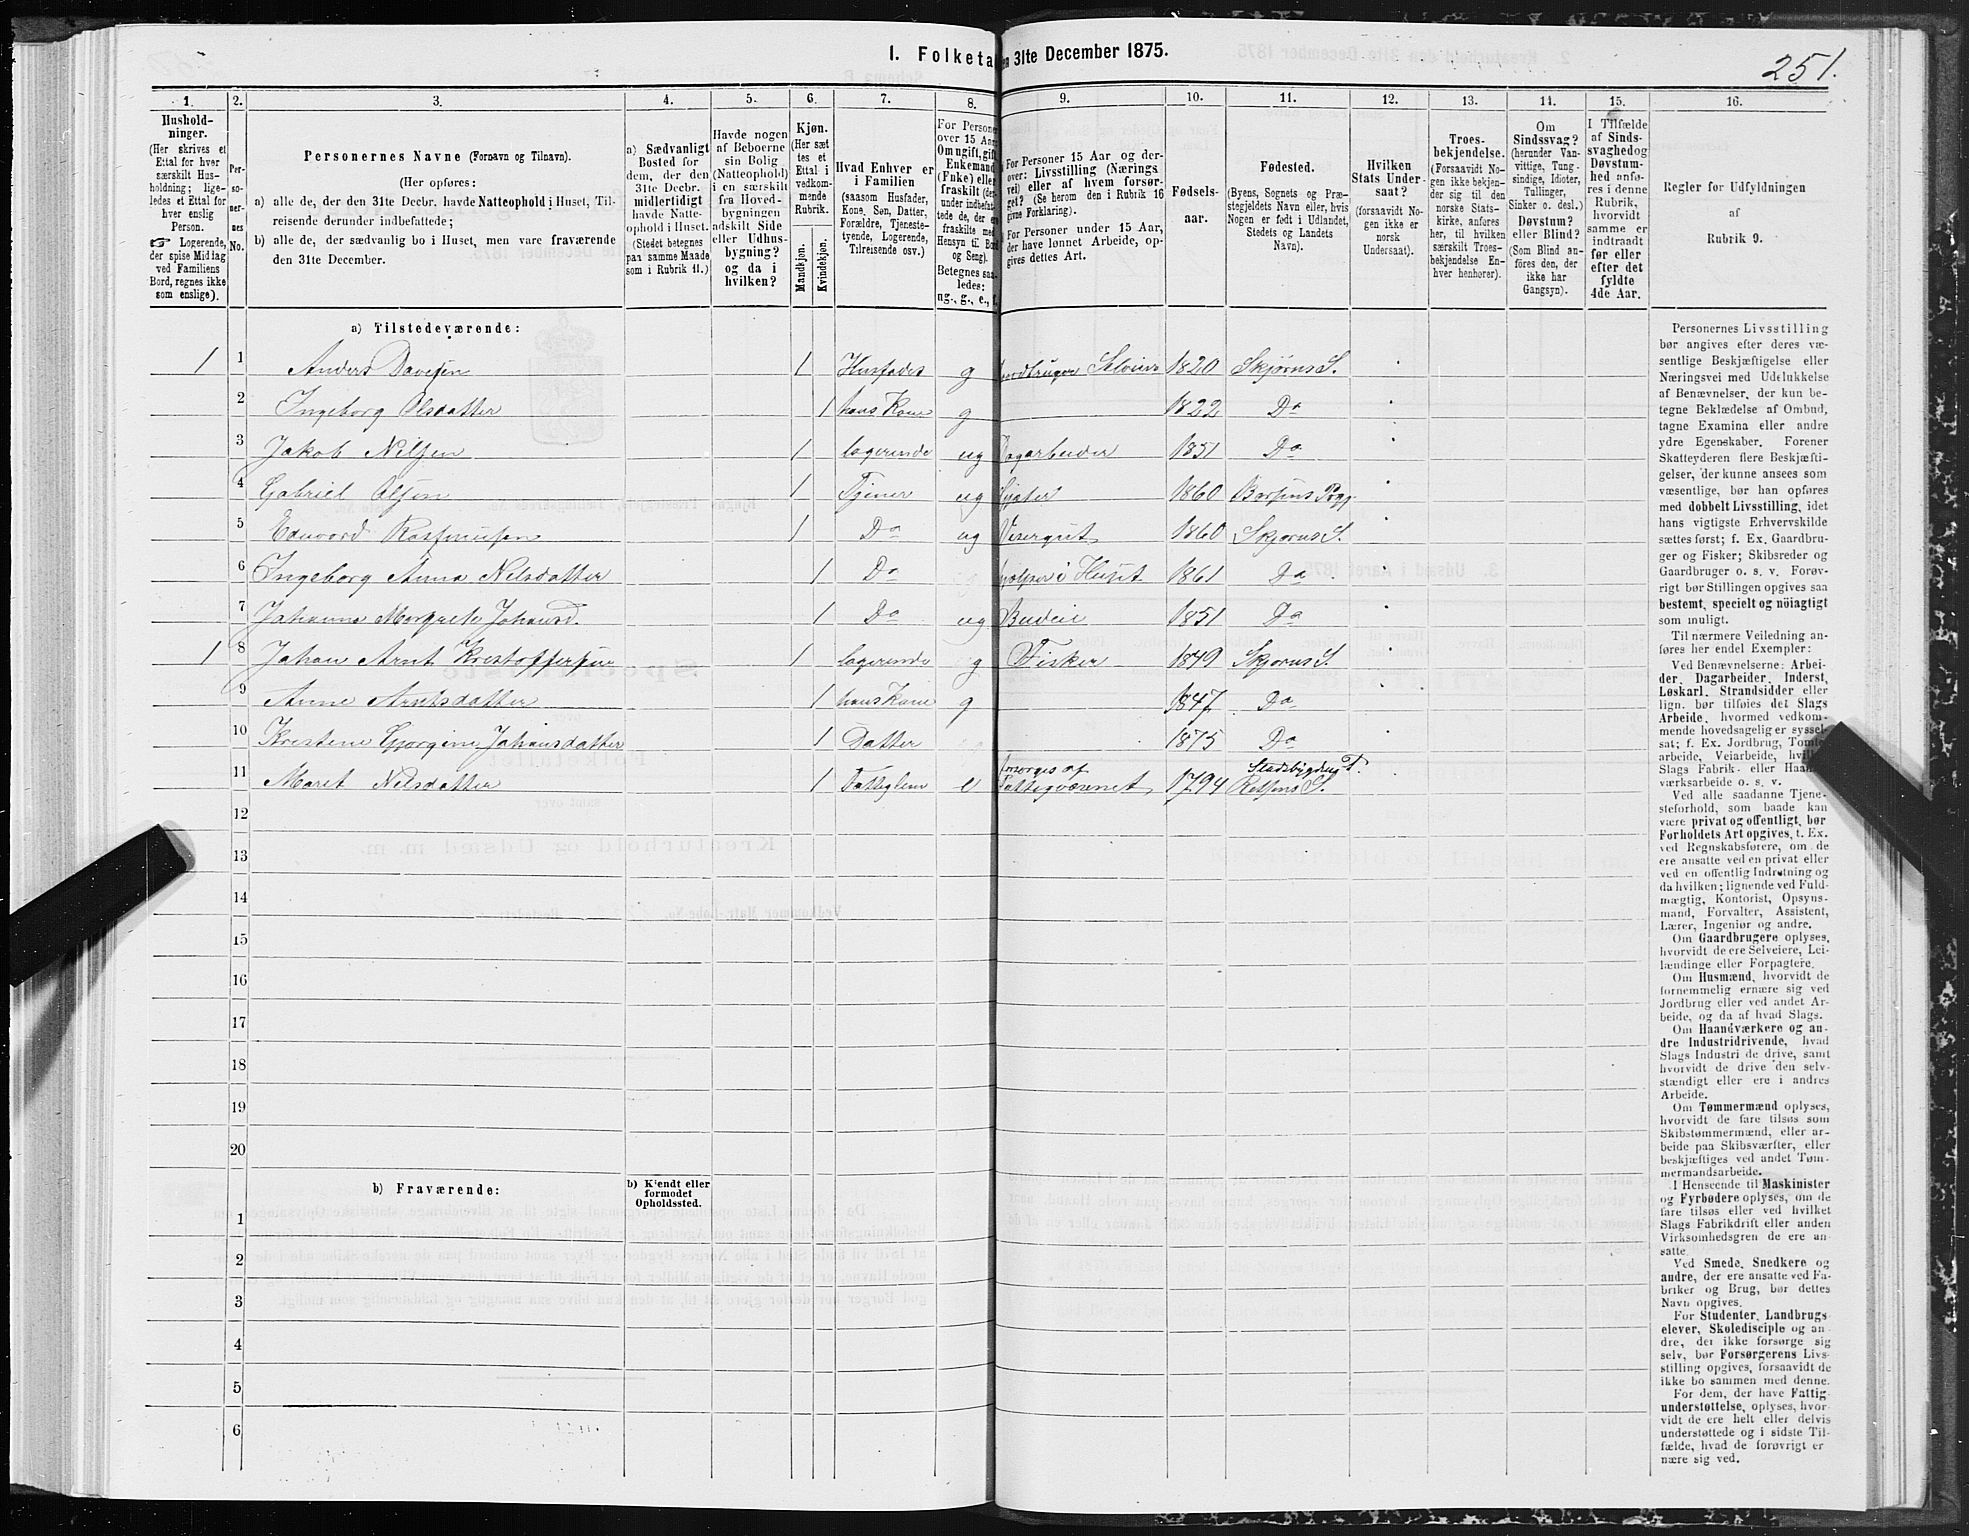 I. Folketa en 31te December 1875.
251.
1. 2. 3. 4. 5. 6. 7. 8. 9. 10. 11. 12. 13. 14. 15. 16.
Hushold-
ninger.
(Her skrives et
Ettal for hver
særskilt Hus-
holdning; lige-
ledes et Ettal for
hver enslig
Person.
☞ Logerende,
der spise Middag
ved Familiens
Bord, regnes ikke
som enslige).
Per-
so-
ner-
nes
No.
Personernes Navne (Fornavn og Tilnavn).
(Her opføres:
a) alle de, der den 31te Decbr. havde Natteophold i Huset, Til-
reisende derunder indbefattede;
b) alle de, der sædvanlig bo i Huset, men vare fraværende
den 31te December.
a) Sædvanligt
Bosted for
dem, der den
31te Decbr.
midlertidigt
havde Natte-
ophold i Huset.
(Stedet betegnes
paa samme Maade
som i Rubrik 11.)
Havde nogen
af Beboerne
sin Bolig
(Natteophold)
i en særskilt
fra Hoved-
bygningen
adskilt Side
eller Udhus-
bygning?
og da i
hvilken?
Kjøn.
(Her sæt
tes et
Ettal i
vedkom-
mende
Rubrik.
Mandkjøn.
Kvindekjøn.
Hvad Enhver er
i Familien
(saasom Husfader,
Kone, Søn, Datter,
Forældre, Tjeneste-
tyende, Logerende,
Tilreisende osv.)
For Persone
over 15 Aar
Om ugift, gift
Enkemand
(Enke) eller
fraskilt (der-
under indbefat-
tede de, der er
fraskilte med
Hensyn til Bord
og Seng).
Betegnes saa-
ledes:
ug., g., e., f.
For Personer 15 Aar og der-
over: Livsstilling (Nærings
vei) eller af hvem forsør-
get? (Se herom den i Rubrik 16
givne Forklaring).
For Personer under 15 Aar,
der have lønnet Arbeide, op-
gives dettes Art.
Fødsels-
aar.
Fødested.
(Byens, Sognets og Præ-
stegjeldets Navn eller, hvis
Nogen er født i Udlandet,
Stedets og Landets
Navn).
Hvilken
Stats Under-
saat?
(forsaavidt No-
gen ikke er
norsk
Undersaat).
Troes-
bekjendelse.
(Forsaavidt No-
gen ikke bekjen-
der sig til den
norske Stats-
kirke, anføres
her, til hvilken
særskilt Troes-
bekjendelse En-
hver henhører).
Om
Sindssvag?
(herunder Van-
vittige, Tung-
sindige, Idioter,
Tullinger,
Sinker o. desl.)
Døvstum?
eller Blind?
(Som Blind an-
føres den, der
ikke har
Gangsyn).
I Tilfælde
af Sinds-
svaghed og
Døvstum-
hed anfø-
res i denne
Rubrik,
hvorvidt
samme er
indtraadt
før eller
efter det
fyldte
4de Aar.
Regler for Udfyldningen
af
Rubrik 9.
a) Tilstedeværende:
1 1 Anders Davesen 1 Husfader g Jordbruger Selveier 1820 Skjørns S.
2 Ingeborg Olsdatter 1 hans Kone g 1822 Do
3 Jakob Nilsen 1 logerende ug Dagarbeider 1851 Do
4 Gabriel Olsen 1 Tjener ug Gjæter 1860 Børsens Pgj.
5 Edvard Rasmusen 1 Do ug Visergut 1860 Skjørns S.
6 Ingeborg Anna Nilsdatter 1 Do hjelper i Huset 1861 Do
7 Johanna Margrete Johansd. 1 Do ug Budeie 1851 Do
1 8 Johan Arnt Kristoffersen 1 logerende g Fisker 1849 Skjørns S.
9 Anne Arntsdatter 1 hans Kone g 1847 Do
10 Kristene Gjorgine Johansdatter 1 Datter 1875 Do
11 Maret Nilsdatter 1 Fattiglem e Forsørges af Fattigvæsenet 1794 Stadsbygdens P. Rissens S.
12
13
14
15
16
17
18
19
20
b) Fraværende:
b) Kjendt eller
formodet
Opholdssted.
1
2
3
4
5
6
Personernes Livsstilling
bør angives efter deres væ-
sentlige Beskjæftigelse eller
Næringsvei med Udelukkelse
af Benævnelser, der kun be-
tegne Beklædelse af Ombud,
tagne Examina eller andre
ydre Egenskaber. Forener
Skatteyderen flere Beskjæfti-
gelser, der kunne ansees som
væsentlige, bør han opføres
med dobbelt Livsstilling, idet
hans vigtigste Erhvervskilde
sættes først; f. Ex. Gaardbru-
ger og Fisker; Skibsreder og
Gaardbruger o. s. v. Forøv-
rigt bør Stillingen opgives saa
bestemt, specielt og nöiagtigt
som muligt.
Til nærmere Veiledning an-
føres her endel Exempler:
Ved Benævnelserne: Arbei-
der, Dagarbeider, Inderst,
Løskarl, Strandsidder eller
lign. bør tilføies det Slags
Arbeide, hvormed vedkom-
mende hovedsagelig er syssel-
sat; f. Ex. Jordbrug, Tomte-
arbeide, Veiarbeide, hvilket
Slags Fabrik- eller Haand-
værksarbeide o. s. v.
Ved alle saadanne Tjene-
steforhold, som baade kan
være privat og offentligt, bør
Forholdets Art opgives, t. Ex.
ved Regnskabsførere, om de
ere ansatte ved en privat eller
ved en offentlig Indretning og
da hvilken; lignende ved Fuld-
mægtig, Kontorist, Opsyns-
mand, Forvalter, Assistent,
Lærer, Ingeniør og andre.
Om Gaardbrugere oplyses,
hvorvidt de ere Selveiere, Lei-
lændinge eller Forpagtere.
Om Husmænd, hvorvidt de
fornemmelig ernære sig ved
Jordbrug eller ved andet Ar-
beide, og da af hvad Slags.
Om Haandværkere og an-
dre Industridrivende, hvad
Slags Industri de drive, samt
hvorvidt de drive den selv-
stændigt eller ere i andres
Arbeide.
Om Tømmermænd oplyses,
hvorvidt de fare tilsøs som
Skibstømmermænd, eller ar-
beide paa Skibsværfter, eller
beskjæftiges ved andet Tøm-
mermandsarbeide.
I Henseende til Maskinister
og Fyrbødere oplyses, om de
fare tilsøs eller ved hvilket
Slags Fabrikdrift eller anden
Virksomhedsgren de ere an-
satte.
Ved Smede, Snedkere og
andre, der ere ansatte ved Fa-
briker og Brug, bør dettes
Navn opgives.
For Studenter, Landbrugs-
elever, Skoledisciple og an-
dre, der ikke forsørge sig
selv, bør Forsørgerens Livs-
stilling opgives, forsaavidt de
ikke bo sammen med denne.
For dem, der have Fattig-
understøttelse, oplyses, hvor-
vidt de ere helt eller delvis
understøttede og i sidste Til-
fælde, hvad de forøvrigt er
nære sig ved.